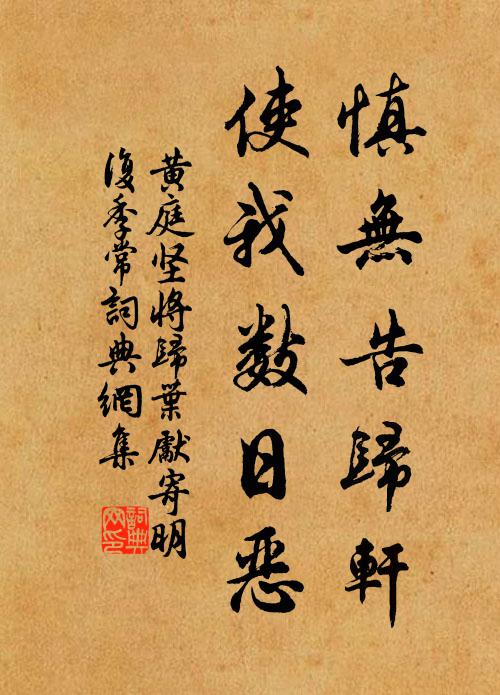 慎無告歸軒
使我數日惡
黄庭坚將歸葉獻寄明
復季常詞典網集
詞典